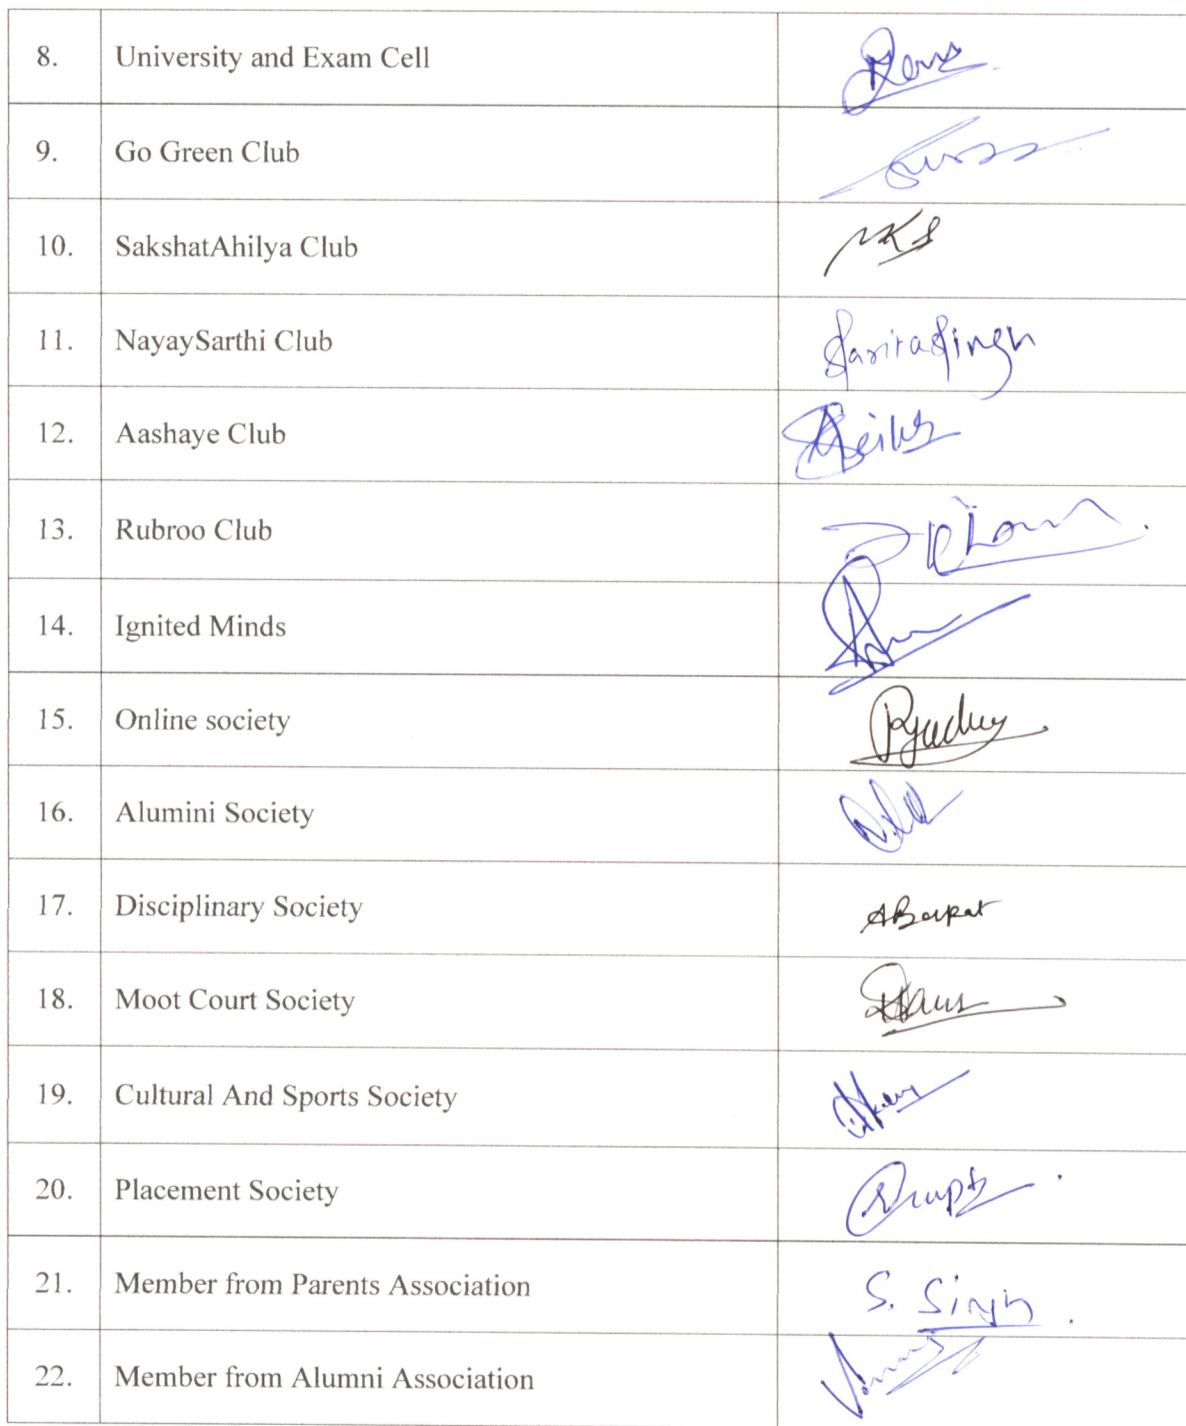 8. University and Exam Cell
9. Go Green Club
10. SakshatAhilya Club
11. NayaySarthi Club SaritaSingh
12. Aashaye Club
13. Rubroo Club
14. Ignited Minds
15. Online society
16. Alumini Society
17. Disciplinary Society
18. Moot Court Society
19. Cultural And Sports Society
20. Placement Society
21. Member from Parents Association S. Singh
22. Member from Alumni Association